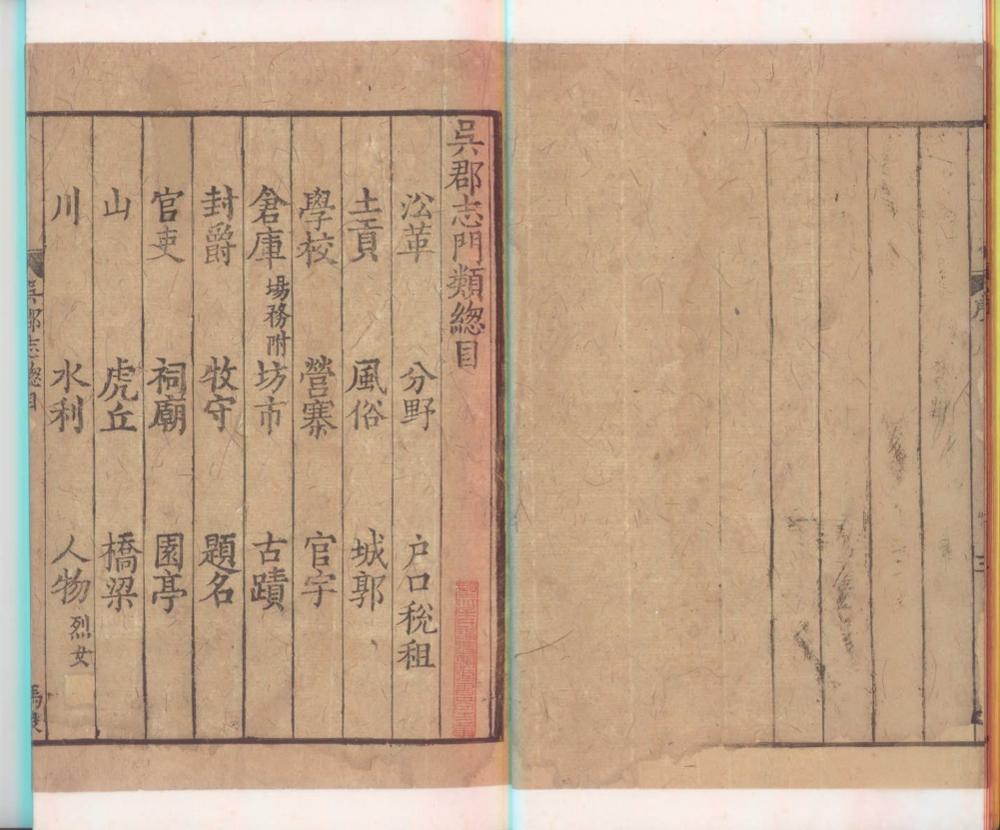 吳郡志門類緫目
㳂革 分野 户口稅租
土貢 風俗 城郭
學校 營寨 官宇
倉庫 場務附 坊市 古蹟
封爵 牧守 題名
官吏 祠廟 園亭
山 虎丘 橋梁
川 水利 人物 烈女
吳郡志緫目